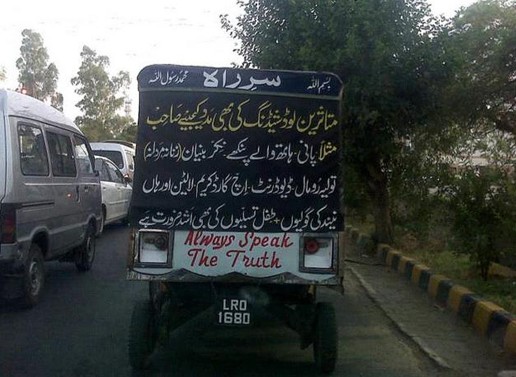 بسم اللہ سرِراہ محمد رسول اللہ
متاثرین لوڈشیڈنگ کی بھی مدد کیجیئے صاحب
مثلاً پانی، ہاتھ والے پنکھے، نکر بنیان (زنانہ مردانہ)
تولیہ رومال، ڈیوڈرنٹ، اِچ گارڈ کریم، لالٹین اور ہاں
نیند کی گولیوں + طفل تسلیوں کی بھی اشد ضرورت ہے
Always Speak
The Truth
LRO
1680